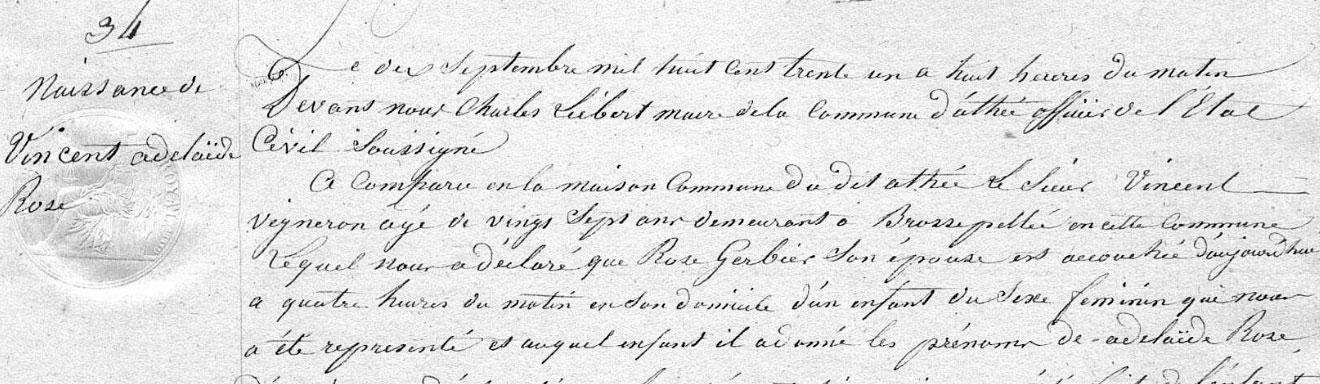 34
Naissance de
Vincent adelaïde
Rose
Le deux Septembre mil huit Cent trente un a huit heures du matin
Devans nous Charles Liébert maire de la Commune d'athée officier de l'Etat
Civil Soussigné
A Comparu en la maison Commune du dit athée le Sieur Vincent
vigneron agé de vingt Sept ans demeurant a Brosse pellée en cette Commune
Lequel nous a déclaré que Rose Gerbier Son épouse est accouchée d'aujourd'hui
a quatre heures du matin en Son domicile d'un enfant du Sexe feminin qui nous
a été representé et auquel enfant il a donné les prénoms de adelaïde Rose